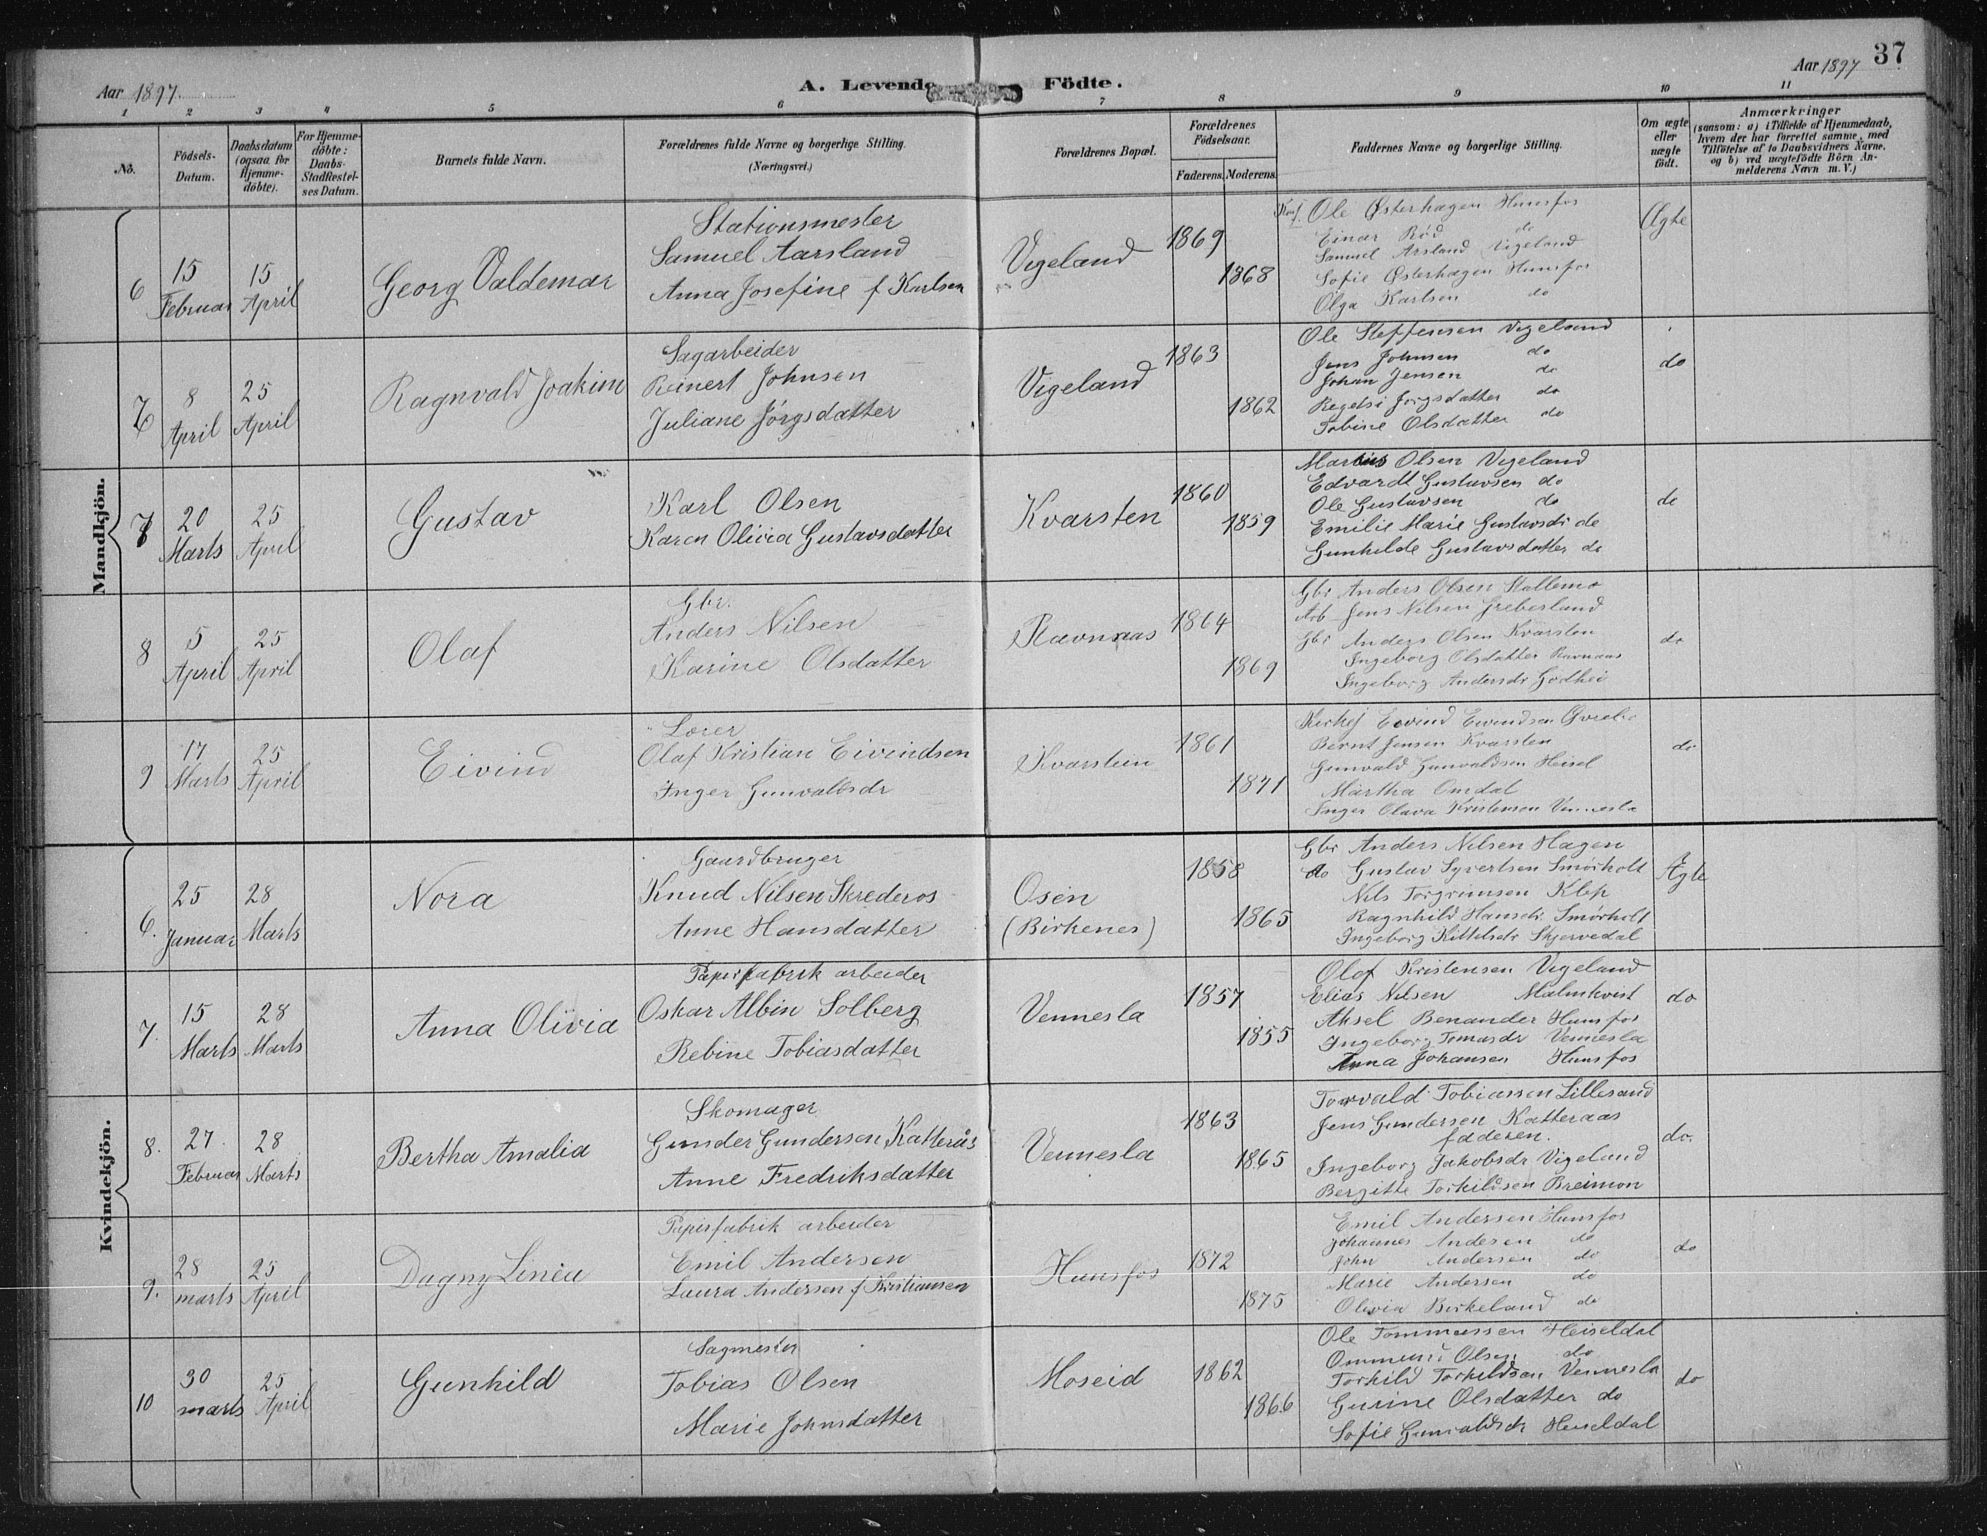 37
Aar 1897.
A. Levende Födte.
Aar 1897
1 2 3 4 5 6 7 8 9 10 11
No.
Födsels-Datum.
Daabsdatum (ogsaa for Hjemme-döbte).
For Hjemme-döbte: Daabs-Stadfæstel-ses Datum.
Barnets fulde Navn.
Forældrenes fulde Navne og borgerlige Stilling.
(Næringsvei.)
Forældrenes Bopæl.
Forældrenes Födselsaar.
Faderens. Moderens.
Faddernes Navne og borgerlige Stilling.
Om ægte eller uægte födt.
Anmærkninger
(saasom: a) i Tilfælde af Hjemmedaab, hvem der har forrettet samme, med Tilföielse af to Daabsvidners Navne, og b) ved uægtefödte Börn An-melderens Navn m. V.)
Mandkjön.
6
15 Februar
15 April
Georg Valdemar
Stationsmester
Samuel Aarsland
Anna Josefine f Karlsen
Vigeland
1869
1868
Ole Østerhagen Hunsfos
Einar Röd do
Samuel Arsland Vigeland
Sofie Østerhagen Hunsfos
Olga Karlsen do
Ægte
8 April
25 April
Ragnvald Joakim
Sagarbeider
Reinert Johnsen
Juliane Jörgsdatter
Vigeland
1863
1862
Ole Steffensen Vigeland
Jens Johnsen do
Johan Jensen do
Jörgsdatter do
Tobine Olsdatter do
do
7
20 Marts
25 April
Gustav
Karl Olsen
Karen Olivia Gustavsdatter
Kvarsten
1860
1859
Marius Olsen Vigeland
Edvardt Gustavsen do
Ole Gustavsen do
Emilie Marie Gustavsdr do
Gunhilde Gustavsdatter do
do
8
5 April
25 April
Olaf
Gbr.
Anders Nilsen
Karine Olsdatter
Ravnaas
1864
1869
Gbr Anders Olsen Stallemo
Arb Jens Nilsen Grebesland
Gbr Anders Olsen Kvarsten
Ingeborg Olsdatter Ravnaas
Ingeborg Andersdr Godhei
do
9
17 Marts
25 April
Eivind
Lærer
Olaf Kristian Eivindsen
Inger Gunvaldsdr
Kvarstein
1861
1871
Eivind Eivindsen Øvrebø
Bernt Jensen Kvarsten
Gunvald Gunvaldsen Heisel
Martha Omdal
Inger Olava Kristensen Vennesla
do
Kvindekjön.
6.
25 Januar
28 Marts
Nora
Gaardbruger
Knud Nilsen Skrederos
Anne Hansdatter
Osen
(Birkenes)
1858
1865
Gbr Anders Nilsen Hagen
do Gustav Syvertsen Smörholt
Nils Torgrimsen Klep
Ragnhild Hansdr Smörholt
Ingeborg Kittelsdr Skjervedal
Ægte
7.
15 Marts
28 Marts
Anna Olivia
Papirfabrik arbeider
Oskar Albin Solberg
Rebine Tobiasdatter
Vennesla
1857
1855
Olaf Kristensen Vigeland
Elias Nilsen Malmkvist
Aksel Benander Hunsfos
Ingeborg Tomasdr Vennesla
Anna Johansen Hunsfos
do
8.
27. Februar
28 Marts
Bertha Amalia
Skomager
Gunder Gundersen Katterås
Anne Fredriksdatter
Vennesla
1863
1865
Torvald Tobiassen Lillesand
Jens Gundersen Katteraas
faderen.
Ingeborg Jakobsdr Vigeland
Bergitte Torkildsen Breimon
do.
9.
28 marts
25 April
Dagny Linéa
Papirfabrik arbeider
Emil Andersen
Laura Andersen f Kristiansen
Hunsfos
1872
1875
Emil Andersen Hunsfos
Johannes Andesen do
John Andersen do
Marie Andersen do
Olivia Birkeland do
do
10
30 marts
25 April
Gunhild
Sagmester
Tobias Olsen
Marie Johnsdatter
Moseid
1862
1866
Ole Tommassen Heiseldal
Ommund Olsen do
Torkild Torkildsen Vennesla
Gurine Olsdatter do
Sofie Gunvaldsdr Heiseldal
do